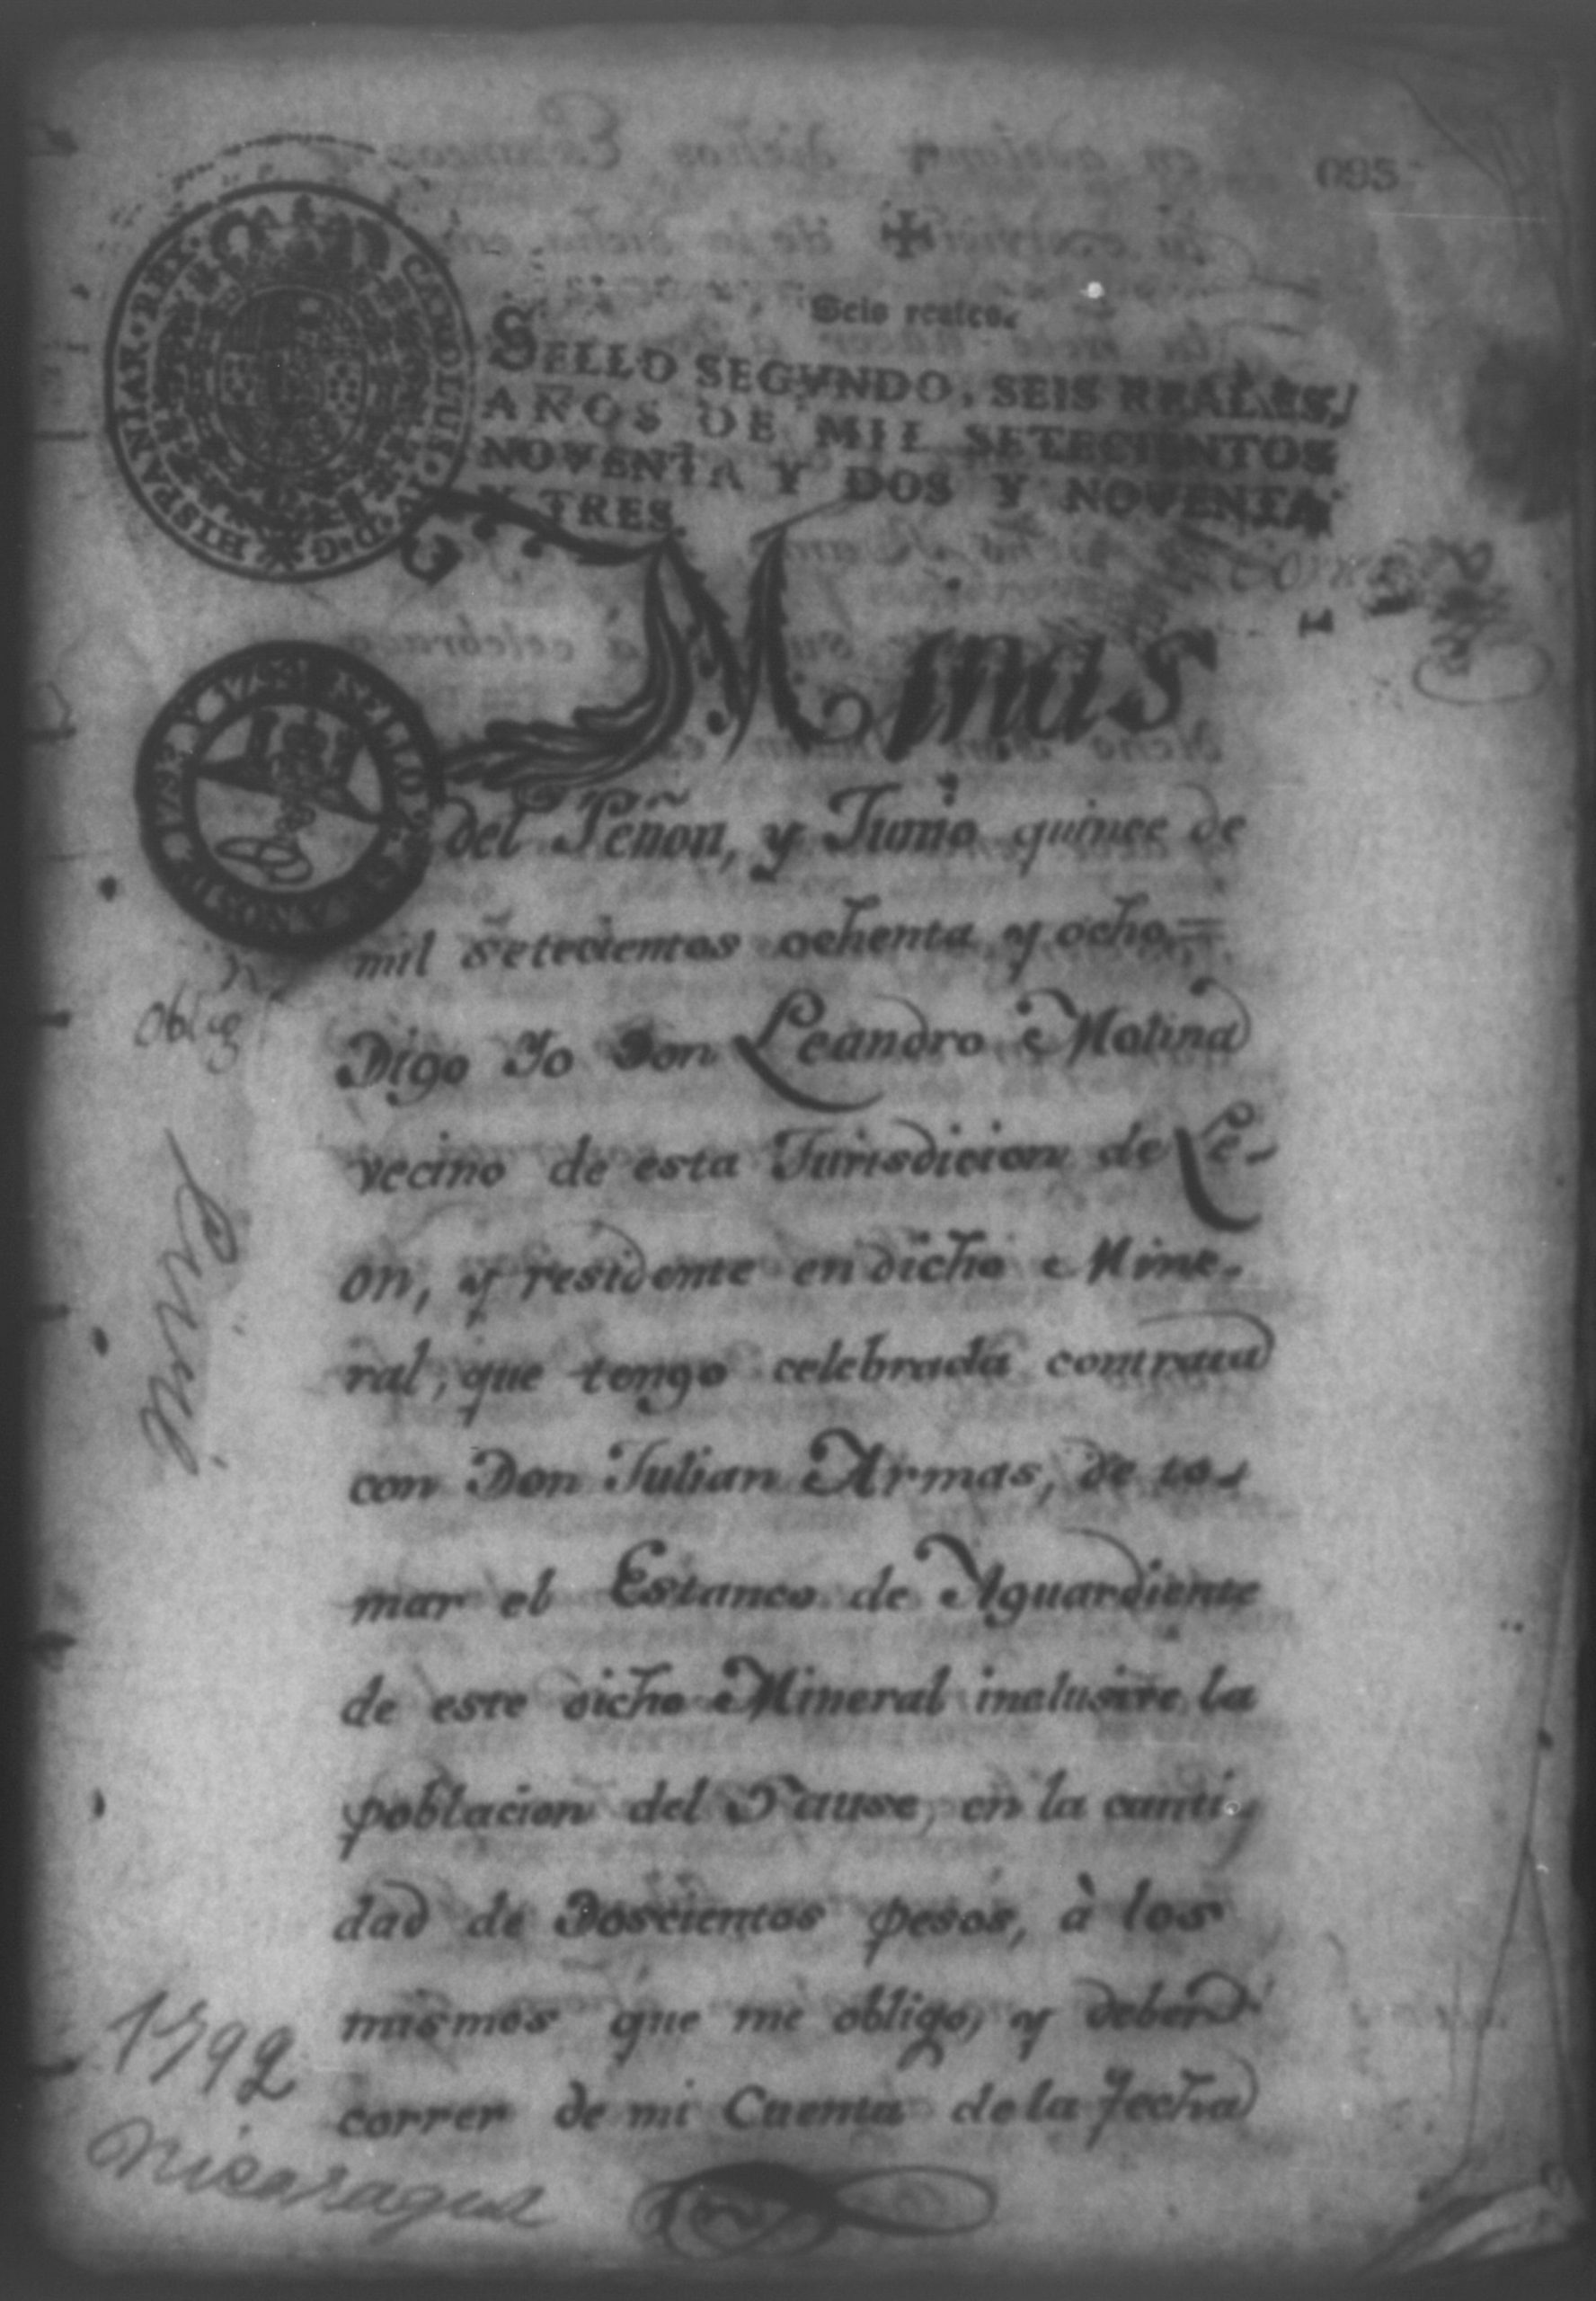 095
Seis reales.
CAROLUS · IV · D · G · HISPANIAR · REX ·
SELLO SEGVNDO, SEIS REALES,
AÑOS DE MIL SETECIENTOS
NOVENTA Y DOS Y NOVENTA
Y TRES.
Minas
del Peñon, y Junio quince de
mil setecientos ochenta y ocho,=
Oblig.n
Digo Yo Don Leandro Molina
vecino de esta Jurisdicion de Le-
on, y residente en dicho Mine-
ral, que tengo celebrada contrata
con Don Julian Armas, de to-
mar el Estanco de Aguardiente
de este dicho Mineral inclusive la
poblacion del Sause, en la canti-
dad de Doscientos pesos, à los
mismos que me obligo, y deberà
correr de mi Cuenta de la fecha
1792
Nicaragua